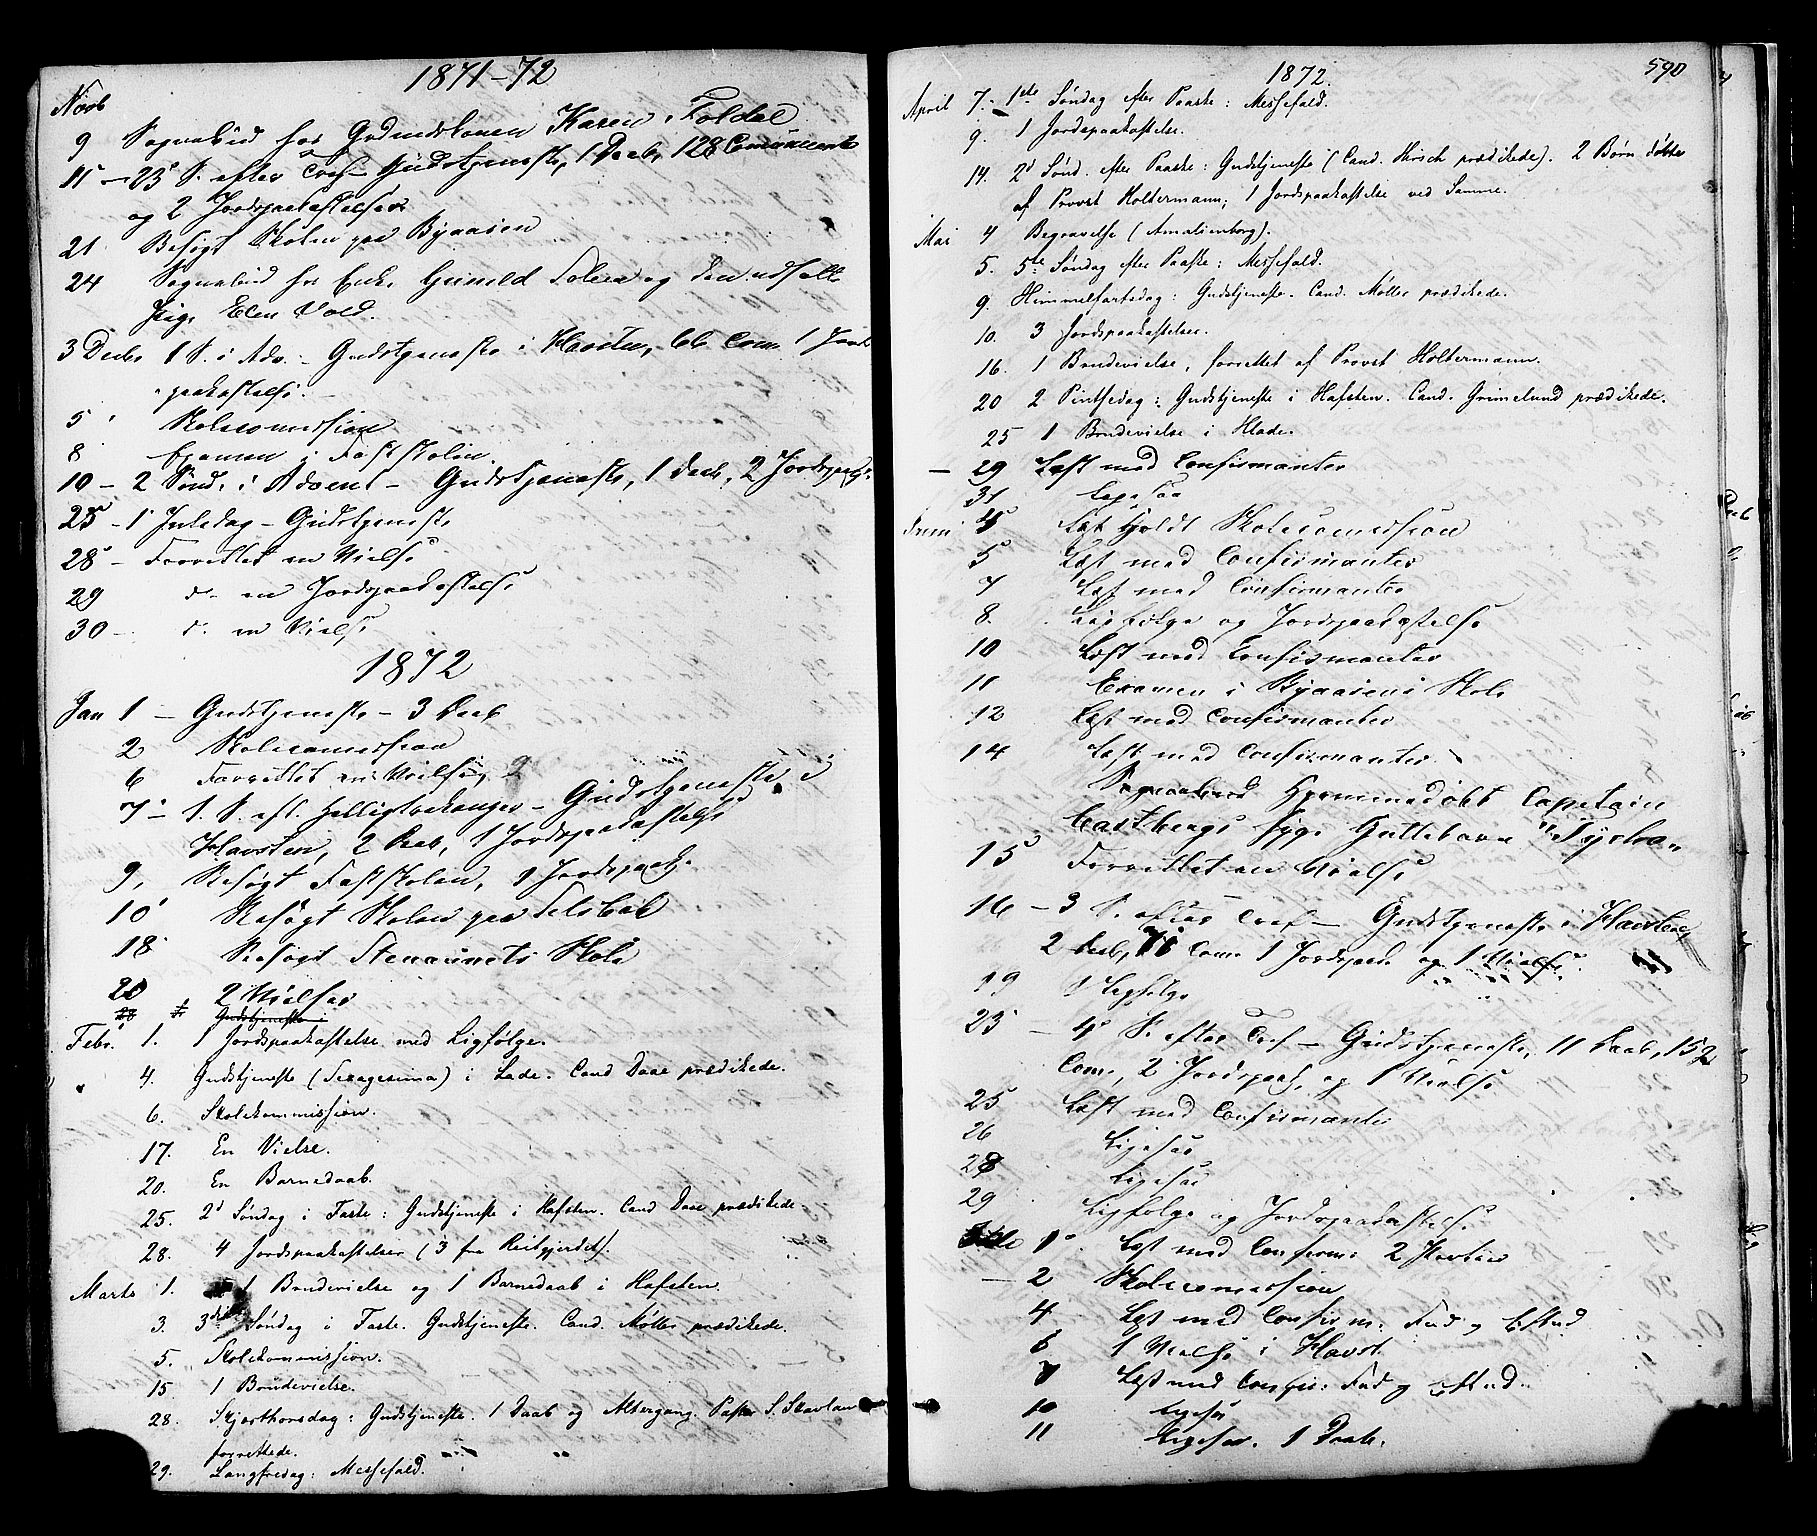 1871-72
Novb
9 Sognebud hos Gudmdskonen Karen Foldal
11 – 23 S. efter Tref – Gudstjeneste, 1 Daab, 128 Comunicante
og 2 Jordpaakastelser
21 Besøgt Skolen paa Byaasen
24 Sognebud hos Enke Gunild Solem og den udfalt
Pige Elen Vold.
3 Decbr 1 S. i Adv. – Gudstjeneste i Havsten, 66 Com. 1 Jord
paakastelse. –
5 Skolecomission
8 Examen i Fastskolen
10 – 2 Sønd. i Advent – Gudstjeneste, 1 Daab, 2 Jordpaak.
25 – 1 Juledag – Gudstjeneste
28 – Forrettet en Vielse
29 d. en Jordpaakastelse
30 – d. en Vielse
1872
Jan 1 – Gudstjeneste – 3 Daab
2 Skolecomission
6 Forrettet en Vielse
7 – 1. S. eft. Helligtrekonger – Gudstjeneste i
Havsten, 2 Daab, 1 Jordpaakastelse
9, Besøgt Fastskolen, 1 Jordpaak.
10 Besøgt Skolen paa Selsbak
18 Besøgt Stenaunets Skole
20 2 Vielser
28 Gudstjeneste i
Febr. 1. 1 Jordspaakastelse med Ligfølge.
4. Gudstjeneste (Sexagesima) i Lade. Cand Daae prædikede.
6. Skolekommission.
17. En Vielse.
20. En Barnedaab.
25. 2d Søndag i Faste: Gudstjeneste i Hafsten. Cand Daae prædikede.
28. 4 Jordspaakastelser (3 fra Reitgjerdet).
Marts 1. 1 Brudevielse og 1 Barnedaab i Hafsten.
3. 3die Søndag i Faste. Gudstjeneste. Cand. Møller prædikede.
5. Skolekommission.
15. 1 Brudevielse.
28. Skjærthorsdag: Gudstjeneste. 1 Daab og Altergang. Pastor S. Skavlan
forrettede.
29. Langfredag: Messefald.
1872.
590
April 7. 1ste Søndag efter Paaske: Messefald.
9. 1 Jordspaakastelse.
14. 2d Sønd. efter Paaske: Gudstjeneste (Cand. Hirsch prædikede). 2 Børn døbte
af Provst Holtermann; 1 Jordspaakastelse ved Samme.
Mai 4 Begravelse (Amalienborg).
5. 5te Søndag efter Paaske: Messefald.
9. Himmelfartsdag: Gudstjeneste. Cand. Møller prædikede.
10. 3 Jordspaakastelser.
16. 1 Brudevielse, forrettet af Provst Holtermann.
20 2 Pintsedag: Gudstjeneste i Hafsten. Cand. Grimelund prædikede.
25 1 Brudevielse i Hlade.
– 29 Læst med Confirmanter
31
Juni 4 Holdt Skolecomission
5 Læst med Confirmanter
7 Læst med Confirmanter
8. Ligfølge og Jordpaakastelse
10 Læst med Confirmanter
11 Examen i Byaasens Skole
12 Læst med Confirmanter
14 Læst med Confirmanter
Sognebud Hjemmedøbt Capetain
Castbergs syge Guttebarn "Tycho"
15 Forrettet en Vielse
16 – 3 S. efter Tref – Gudstjeneste i Havsten,
2 Daab, 71 Com. 1 Jordpaak og 1 Vielse.
19 1 Ligfølge
23 – 4 S. efter Tref – Gudstjeneste, 11 Daab, 152
Com., 2 Jordpaak, og 1 Vielse
25 Læst med Confirmanter
26
28
29 Ligfølge og Jordpaakastelse
Jule 1. Læst med Confirm:
– 2 Skolecomission
4 Læst med Confirm:
6 1 Vielse i Havst.
7 Læst med Confir:
10
11 1 Daab.